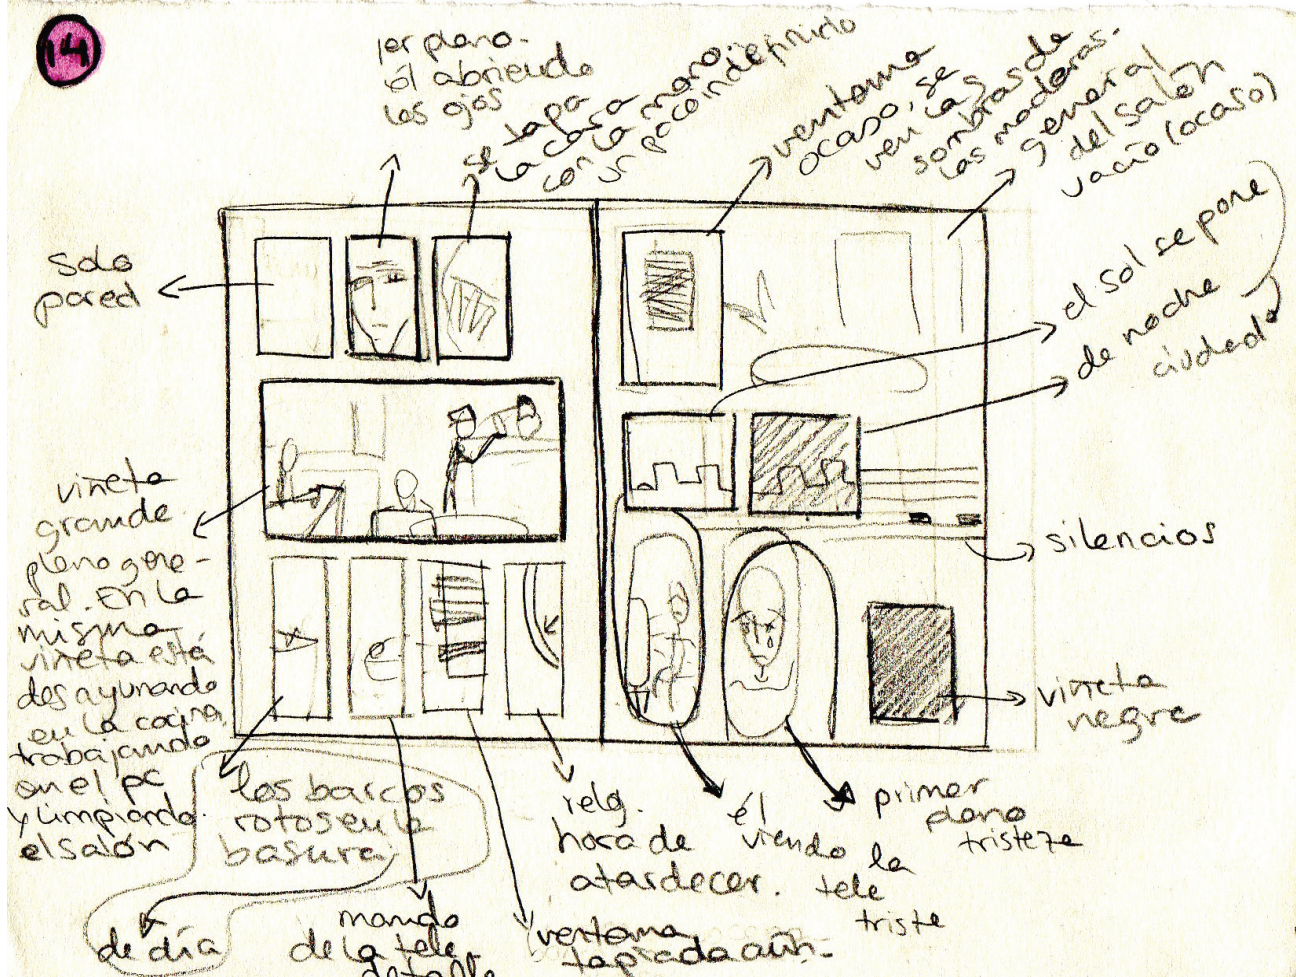 14
1er plano.
él abriendo
los ojos
se tapa
la cara
con la mano.
un poco indefinido
ventana
ocaso, se
ven las
sombras de
las maderas.
general
del salón
vacío (ocaso)
solo
pared
el sol se pone
de noche
ciudad
viñeta
grande
plano gene-
ral. En la
misma
viñeta está
desayunando
en la cocina,
trabajando
en el pc
y limpiando
el salón
silencios
viñeta
negra
los barcos
rotos en la
basura
de día
mando
de la tele
detalle
ventana
tapiada aún.
reloj.
hora de
atardecer.
él
viendo la
tele
triste
primer
plano
tristeza